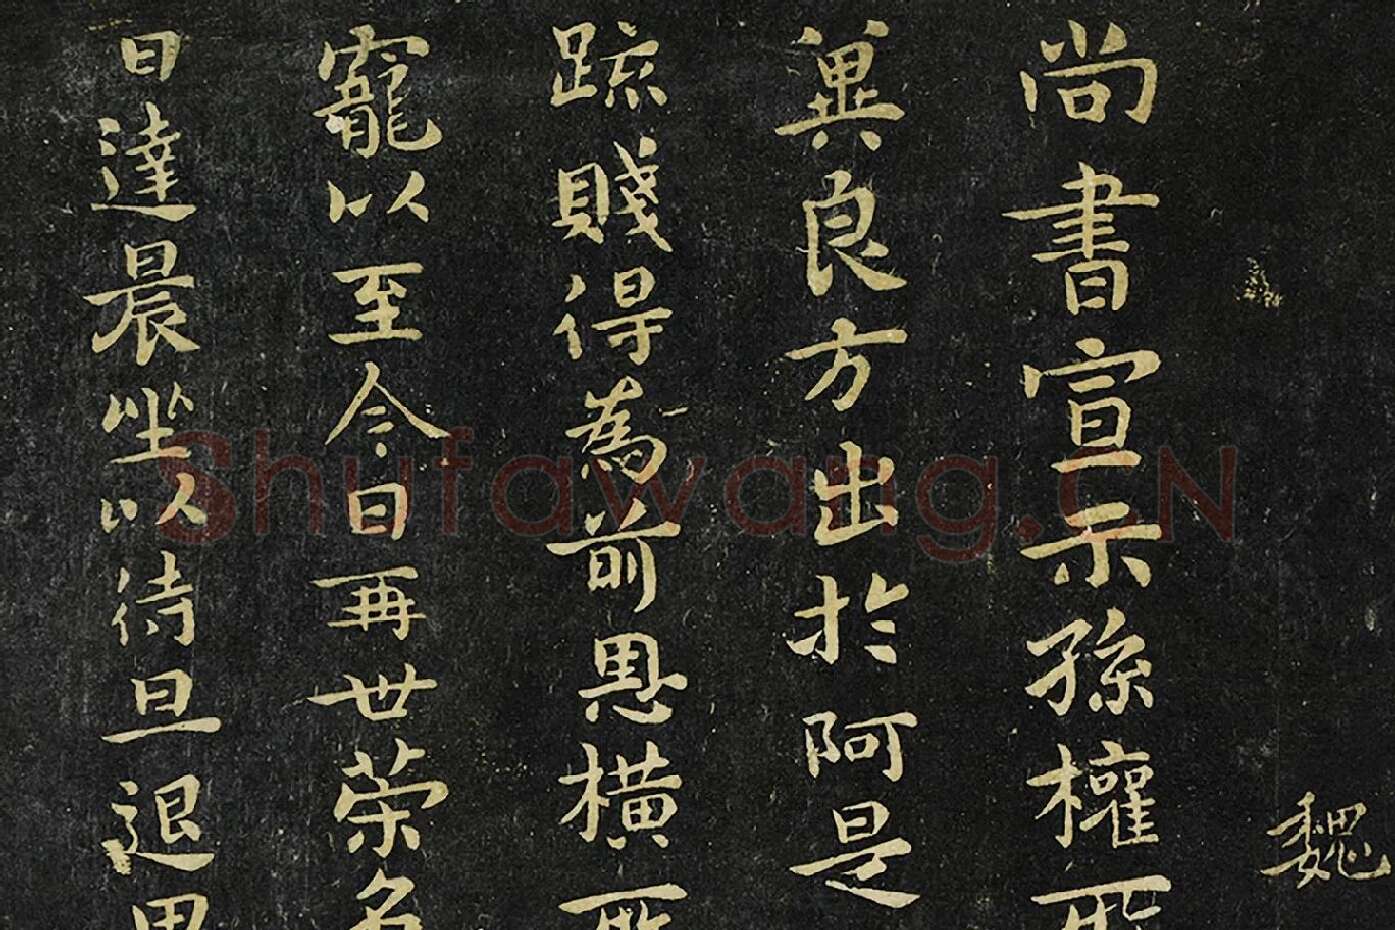 魏
尚書宣示孫權所
冀良方出於阿是
䟽賤得為前恩橫所
寵以至今日再世榮名
日達晨坐以待旦退思
Shufawang.CN